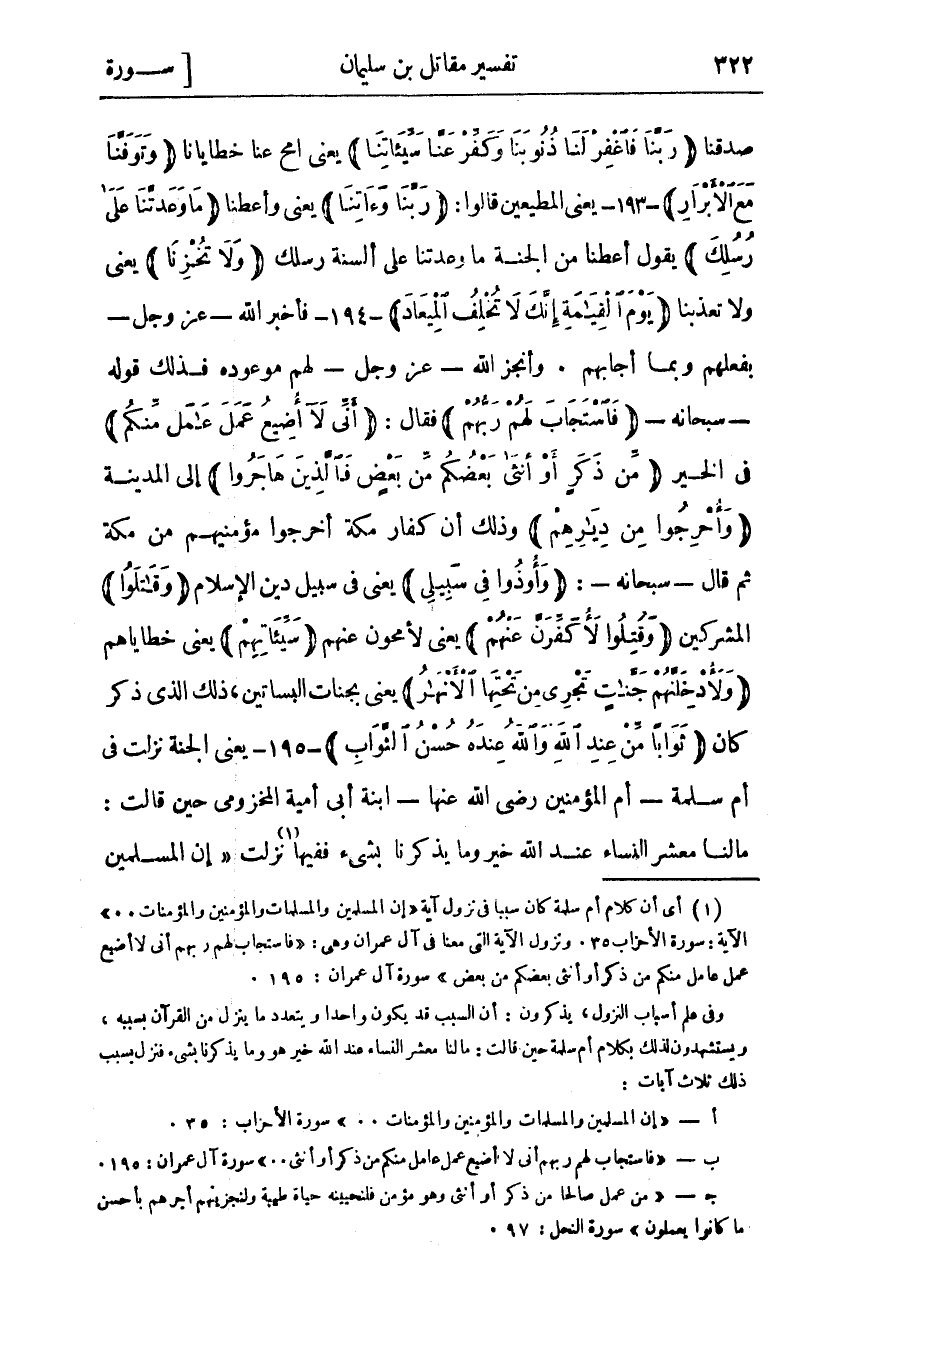 ٣٢٢ تفسير مقاتل بن سليمان [ ســورة
صدقنا ﴿ رَبَّنَا فَاغْفِرْ لَنَا ذُنُوبَنَا وَكَفِّرْ عَنَّا سَيِّئَاتِنَا ﴾ يعنى امح عنا خطايانا ﴿ وَتَوَفَّنَا
مَعَ ٱلْأَبْرَارِ﴾ -١٩٣- يعنى المطيعين قالوا : ﴿ رَبَّنَا وَءَاتِنَا ﴾ يعنى وأعطنا ﴿ مَا وَعَدتَّنَا عَلَىٰ
رُسُلِكَ ﴾ يقول أعطنا من الجنــة ما وعدتنا على ألسنة رسلك ﴿ وَلَا تُخْزِنَا ﴾ يعنى
ولا تعذبنا ﴿ يَوْمَ ٱلْقِيَـٰمَةِ إِنَّكَ لَا تُخْلِفُ ٱلْمِيعَادَ﴾ -١٩٤- فأخبر الله — عز وجل —
بفعلهم وبمــا أجابهم . وأنجز الله — عز وجل — لهم موعوده فــذلك قوله
— سبحانه — ﴿ فَٱسْتَجَابَ لَهُمْ رَبُّهُمْ ﴾ فقال : ﴿ أَنِّى لَآ أُضِيعُ عَمَلَ عَـٰمِلٍ مِّنكُم ﴾
فى الخــير ﴿ مِّن ذَكَرٍ أَوْ أُنثَىٰ بَعْضُكُم مِّن بَعْضٍ فَٱلَّذِينَ هَاجَرُوا ﴾ إلى المدينــة
﴿ وَأُخْرِجُوا مِن دِيَـٰرِهِمْ ﴾ وذلك أن كفار مكة أخرجوا مؤمنيهــم من مكة
ثم قال — سبحانه — : ﴿ وَأُوذُوا فِى سَبِيلِى ﴾ يعنى فى سبيل دين الإسلام ﴿ وَقَـٰتَلُوا ﴾
المشركين ﴿ وَقُتِلُوا لَأُكَفِّرَنَّ عَنْهُمْ ﴾ يعنى لأمحون عنهم ﴿ سَيِّئَاتِهِمْ ﴾ يعنى خطاياهم
﴿ وَلَأُدْخِلَنَّهُمْ جَنَّـٰتٍ تَجْرِى مِن تَحْتِهَا ٱلْأَنْهَـٰرُ ﴾ يعنى بجنات البساتين ، ذلك الذى ذكر
كان ﴿ ثَوَابًا مِّنْ عِندِ ٱللَّهِ وَٱللَّهُ عِندَهُ حُسْنُ ٱلثَّوَابِ ﴾ -١٩٥- يعنى الجنة نزلت فى
أم ســلمة — أم المؤمنين رضى الله عنها — ابنة أبى أمية المخزومى حين قالت :
مالنــا معشر النساء عنــد الله خير وما يذكرنا بشىء ففيها(١) نزلت « إن المســلمين
(١) أى أن كلام أم سلمة كان سببا فى نزول آية «إن المسلمين والمسلمات والمؤمنين والمؤمنات ..»
الآية : سورة الأحزاب ٣٥ . ونزول الآية التى معنا فى آل عمران وهى : «فاستجاب لهم ربهم أنى لا أضيع
عمل عامل منكم من ذكر أو أنثى بعضكم من بعض » سورة آل عمران : ١٩٥ .
وفى علم أسباب النزول ، يذكرون : أن السبب قد يكون واحدا ويتعدد ما ينزل من القرآن بسببه ،
ويستشهدون لذلك بكلام أم سلمة حين قالت : مالنا معشر النساء عند الله خير هو وما يذكرنا بشىء فنزل بسبب
ذلك ثلاث آيات :
أ — « إن المسلمين والمسلمات والمؤمنين والمؤمنات .. » سورة الأحزاب : ٣٥ .
ب — «فاستجاب لهم ربهم أنى لا أضيع عمل عامل منكم من ذكر أو أنثى ..» سورة آل عمران : ١٩٥ .
جـ — « من عمل صالحا من ذكر أو أنثى وهو مؤمن فلنحيينه حياة طيبة ولنجزينهم أجرهم بأحسن
ما كانوا يعملون » سورة النحل : ٩٧ .